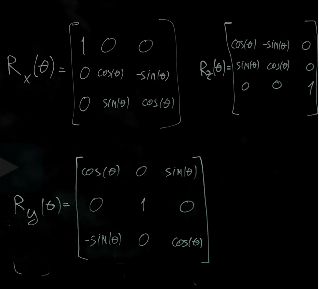 R_x(θ) = [1 0 0
0 cos(θ) -sin(θ)
0 sin(θ) cos(θ)]
R_z(θ) = [cos(θ) -sin(θ) 0
sin(θ) cos(θ) 0
0 0 1]
R_y(θ) = [cos(θ) 0 sin(θ)
0 1 0
-sin(θ) 0 cos(θ)]